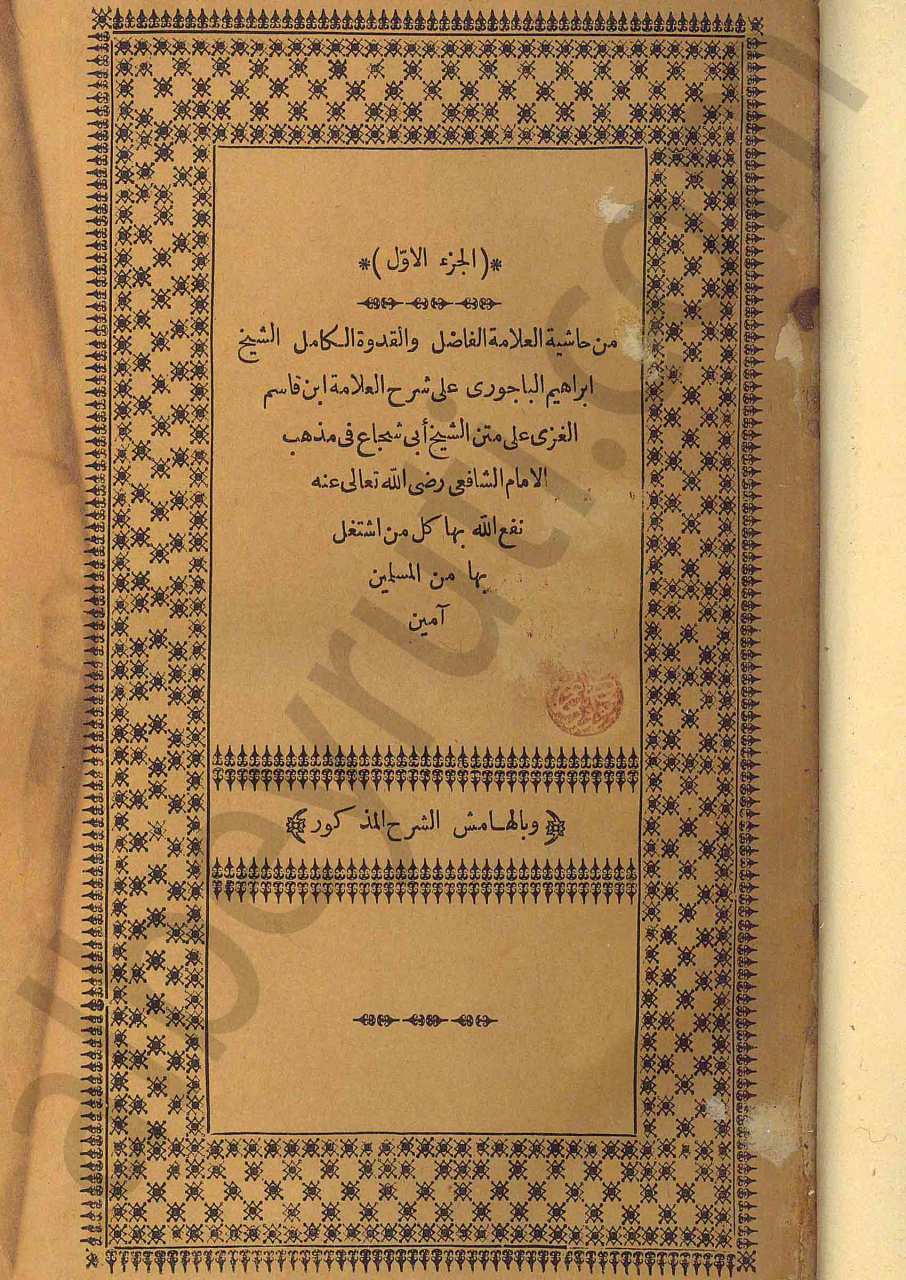 *(الجزء الاوّل)*
من حاشية العلامة الفاضل والقدوة الكامل الشيخ
ابراهيم الباجورى على شرح العلامة ابن قاسم
الغزى على متن الشيخ أبى شجاع فى مذهب
الامام الشافعى رضى الله تعالى عنه
نفع الله بها كل من اشتغل
بها من المسلمين
آمين
﴿وبالهامش الشرح المذكور﴾